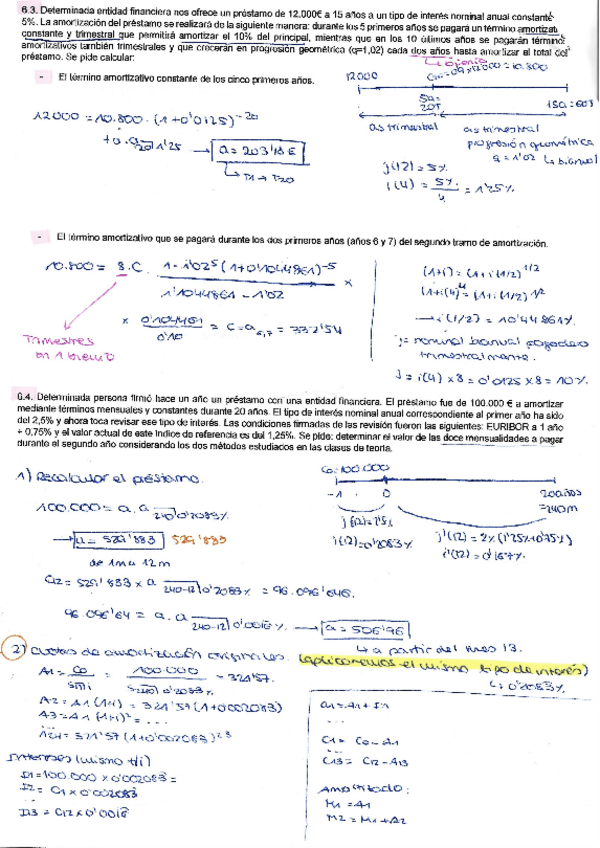 6.3. Determinada entidad financiera nos ofrece un préstamo de 12.000€ a 15 años a un tipo de interés nominal anual constante
5%. La amortización del préstamo se realizará de la siguiente manera: durante los 5 primeros años se pagará un término amortizati
constante y trimestral que permitirá amortizar el 10% del principal, mientras que en los 10 útimos años se pagarán término
amortizativos también trimestrales y que crecerán en progresión geométrica (q=1,02) cada dos años hasta amortizar el total del
préstamo. Se pide calcular:
↳ bienio
- El término amortizativo constante de los cinco primeros años.
12000
= 0'9 x 12000 = 10.800
12000 = 10.800 · (1+0'0125)^-20
+ a · a 20|1'25 → a = 203'18 €
↳ T1 → T20
5a = 20T
15a = 60T
as trimestral
as trimestral
progresión geométrica
q = 1'02 ↳ bianual
j(12) = 5%
i(4) = 5%/4 = 1'25%
- El término amortizativo que se pagará durante los dos primeros años (años 6 y 7) del segundo tramo de amortización.
10.800 = 8 · C · 1 - 1'02^5 (1+0'1044861)^-5 / 1'1044861 - 1'02 ×
× 0'104481 / 0'10 = C = a6,7 = 337'54
Trimestres
en 1 bienio
(1+i) = (1+i(1/2))^1/2
(1+i(4))^4 = (1+i(1/2))^1/2
→ i(1/2) = 10'44861%
j = nominal bianual pagadero
trimestralmente.
J = i(4) × 8 = 0'0125 × 8 = 10%
6.4. Determinada persona firmó hace un año un préstamo con una entidad financiera. El préstamo fue de 100.000 € a amortizar
mediante términos mensuales y constantes durante 20 años. El tipo de interés nominal anual correspondiente al primer año ha sido
del 2,5% y ahora toca revisar ese tipo de interés. Las condiciones firmadas de la revisión fueron las siguientes: EURIBOR a 1 año
+ 0,75% y el valor actual de este índice de referencia es dul 1,25%. Se pide: determinar el valor de las doce mensualidades a pagar
durante el segundo año considerando los dos métodos estudiados en las clases de teoría.
1) Recalcular el préstamo.
Co = 100.000
-1 0 20 años
= 240m
100.000 = a · a 240|0'2083%
→ a = 529'883 529'883
de 1m a 12m
j(12) = 2'5%
i(12) = 0'2083%
j'(12) = 2% (1'25% + 0'75%)
i'(12) = 0'167%
C12 = 529'883 × a 240-12|0'2083% = 96.096'646
96.096'64 = a · a 240-12|0'0016% → a = 506'96
↳ a partir del mes 13.
2) Cuotas de amortización originales. (aplicaremos el mismo tipo de interés)
↳ 0'2083%
A1 = Co / Sn|i = 100.000 / S240|0'002083 = 321'57
A2 = A1 (1+i) = 321'57 (1+0'002083)
A3 = A1 (1+i)^2 = ...
A24 = 321'57 (1+0'002083)^23
Intereses (nuevo tti)
I1 = 100.000 × 0'002083 =
I2 = C1 × 0'002083
I13 = C12 × 0'0016
a1 = A1 + I1
...
C1 = Co - A1
C13 = C12 - A13
Amortizado:
M1 = A1
M2 = M1 + A2